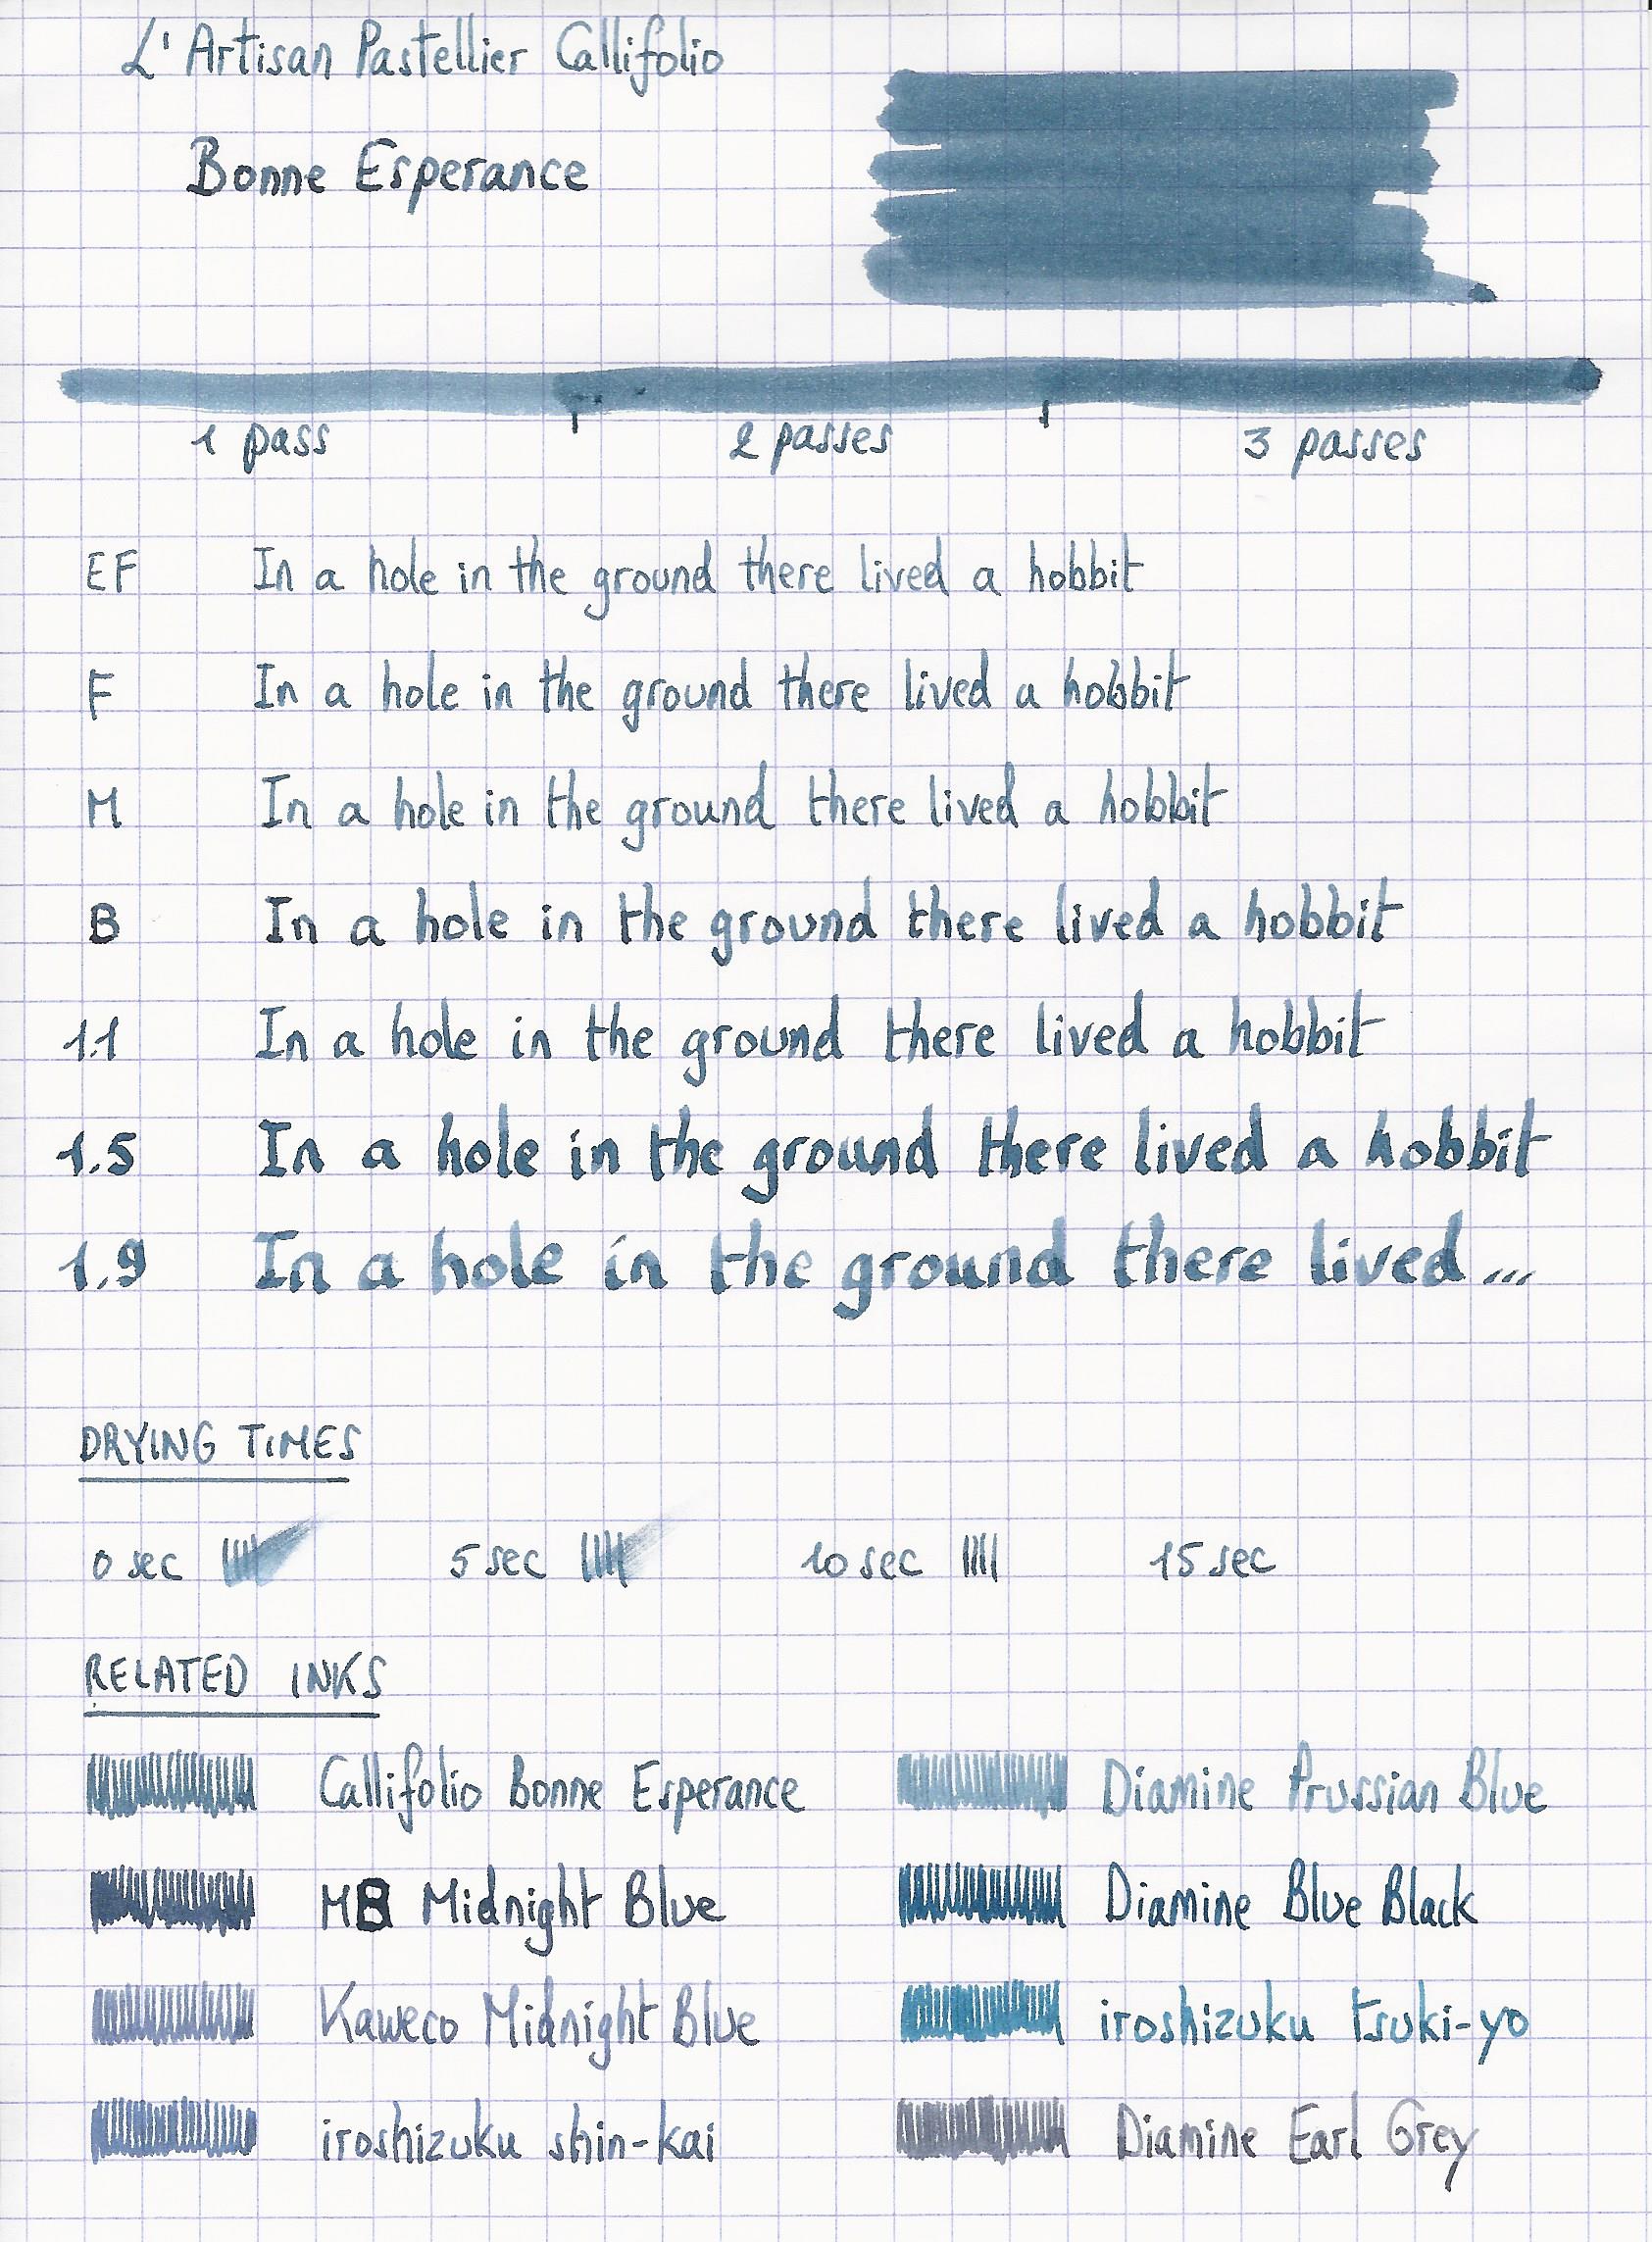 L'Artisan Pastellier Callifolio
Bonne Esperance
1 pass 2 passes 3 passes
EF In a hole in the ground there lived a hobbit
F In a hole in the ground there lived a hobbit
M In a hole in the ground there lived a hobbit
B In a hole in the ground there lived a hobbit
1.1 In a hole in the ground there lived a hobbit
1.5 In a hole in the ground there lived a hobbit
1.9 In a hole in the ground there lived...
DRYING TIMES
0 sec 5 sec 10 sec 15 sec
RELATED INKS
Callifolio Bonne Esperance Diamine Prussian Blue
MB Midnight Blue Diamine Blue Black
Kaweco Midnight Blue iroshizuku tsuki-yo
iroshizuku shin-kai Diamine Earl Grey